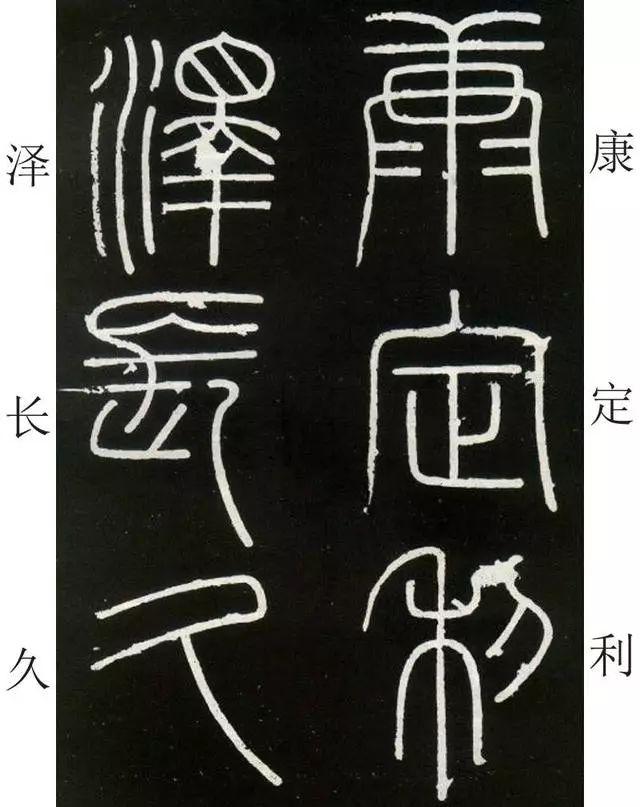 康定利
澤長久
康
定
利
泽
长
久